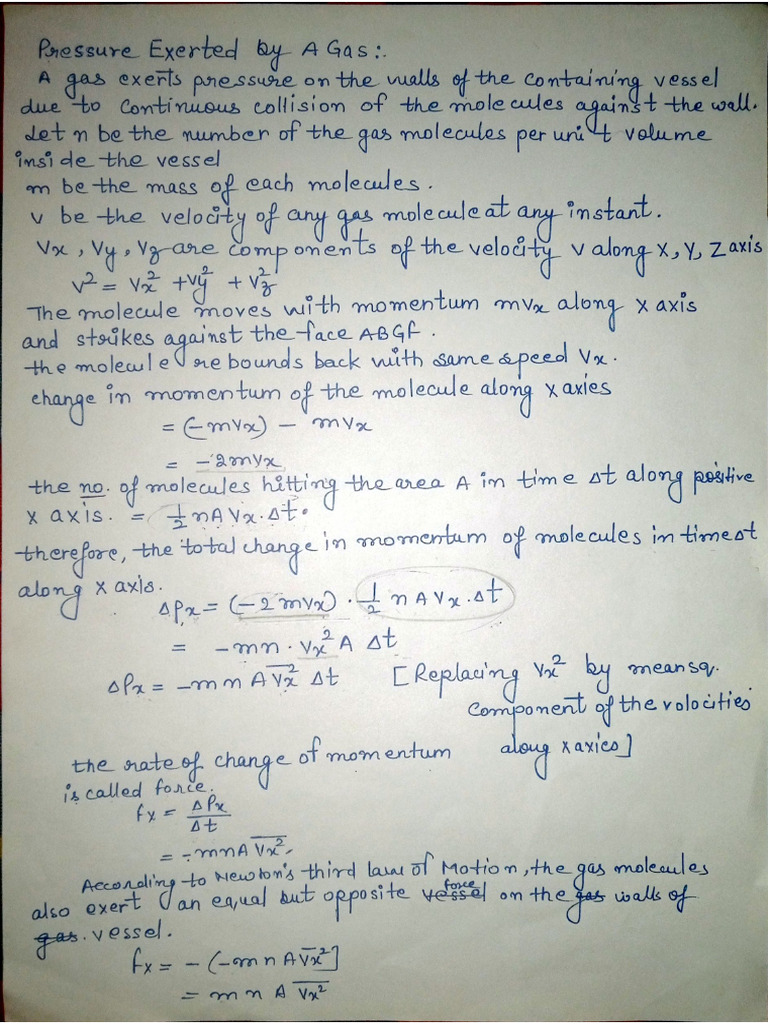 Pressure Exerted by A Gas:.
A gas exerts pressure on the walls of the containing vessel
due to continuous collision of the molecules against the wall.
Let n be the number of the gas molecules per unit volume
inside the vessel
m be the mass of each molecules.
v be the velocity of any gas molecule at any instant.
Vx, Vy, Vz are components of the velocity v along X, Y, Z axis
V² = Vx² + Vy² + Vz²
The molecule moves with momentum mvx along x axis
and strikes against the face ABGF.
the molecule rebounds back with same speed Vx.
change in momentum of the molecule along x axies
= (-mvx) - mvx
= -2mvx
the no. of molecules hitting the area A in time Δt along positive
x axis. = 1/2 nAVx.Δt.
therefore, the total change in momentum of molecules in time Δt
along x axis.
Δpx = (-2mvx) . 1/2 n A Vx . Δt
= -mn . Vx² A Δt
ΔPx = -m n A V̅x̅² Δt [Replacing Vx² by mean sq.
component of the volocities
along x axies]
the rate of change of momentum
is called force.
fx = ΔPx/Δt
= -mnA V̅x̅².
According to Newton's third law of Motion, the gas molecules
also exert an equal but opposite vessel force on the gas walls of
gas. vessel.
fx = - (-m n A V̅x̅²]
= m n A V̅x̅²